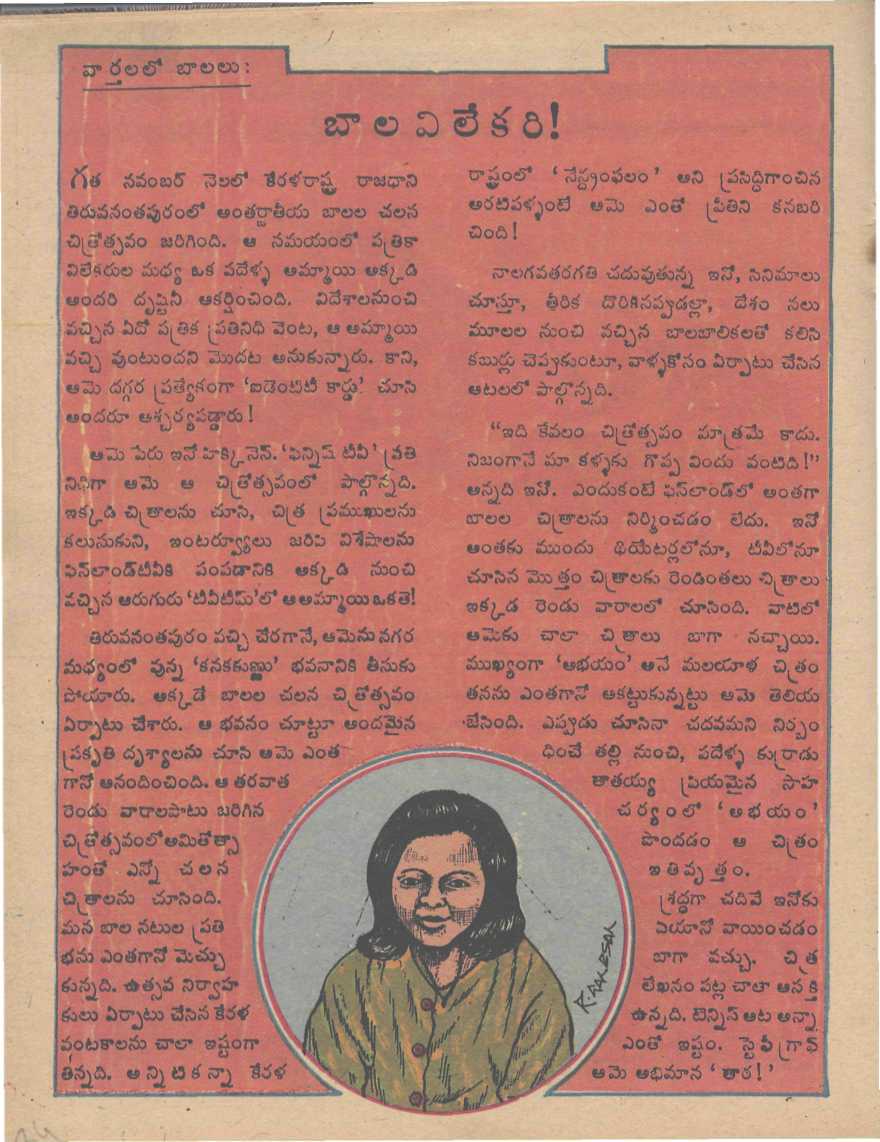 వార్తలలో బాలలు:
బాల విలేకరి!
గత నవంబర్ నెలలో కేరళరాష్ట్ర రాజధాని
తిరువనంతపురంలో అంతర్జాతీయ బాలల చలన
చిత్రోత్సవం జరిగింది. ఆ సమయంలో పత్రికా
విలేకరుల మధ్య ఒక పదేళ్ళ అమ్మాయి అక్కడి
అందరి దృష్టినీ ఆకర్షించింది. విదేశాలనుంచి
వచ్చిన ఏదో పత్రిక ప్రతినిధి వెంట, ఆ అమ్మాయి
వచ్చి వుంటుందని మొదట అనుకున్నారు. కాని,
ఆమె దగ్గర ప్రత్యేకంగా 'ఐడెంటిటీ కార్డు' చూసి
అందరూ ఆశ్చర్యపడ్డారు!
ఆమె పేరు ఇనో హిక్కినెన్. 'ఫిన్నిష్ టీవీ' ప్రతి
నిధిగా ఆమె ఆ చిత్రోత్సవంలో పాల్గొన్నది.
ఇక్కడి చిత్రాలను చూసి, చిత్ర ప్రముఖులను
కలుసుకుని, ఇంటర్వ్యూలు జరిపి విశేషాలను
ఫిన్‌లాండ్‌టీవీకి పంపడానికి అక్కడి నుంచి
వచ్చిన ఆరుగురు 'టీవీటీమ్'లో ఆ అమ్మాయి ఒకతె!
తిరువనంతపురం వచ్చి చేరగానే, ఆమెను నగర
మధ్యంలో వున్న 'కనకకుణ్ణు' భవనానికి తీసుకు
పోయారు. అక్కడే బాలల చలన చిత్రోత్సవం
ఏర్పాటు చేశారు. ఆ భవనం చూట్టూ అందమైన
ప్రకృతి దృశ్యాలను చూసి ఆమె ఎంత
గానో ఆనందించింది. ఆ తరవాత
రెండు వారాలపాటు జరిగిన
చిత్రోత్సవంలో అమితోత్సా
హంతో ఎన్నో చలన
చిత్రాలను చూసింది.
మన బాల నటుల ప్రతి
భను ఎంతగానో మెచ్చు
కున్నది. ఉత్సవ నిర్వాహ
కులు ఏర్పాటు చేసిన కేరళ
వంటకాలను చాలా ఇష్టంగా
తిన్నది. అన్నిటికన్నా కేరళ
రాష్ట్రంలో 'నేన్ద్రంఫలం' అని ప్రసిద్ధిగాంచిన
అరటిపళ్ళంటే ఆమె ఎంతో ప్రీతిని కనబరి
చింది!
నాలగవతరగతి చదువుతున్న ఇనో, సినిమాలు
చూస్తూ, తీరిక దొరికినప్పుడల్లా, దేశం నలు
మూలల నుంచి వచ్చిన బాలబాలికలతో కలిసి
కబుర్లు చెప్పుకుంటూ, వాళ్ళకోసం ఏర్పాటు చేసిన
ఆటలలో పాల్గొన్నది.
"ఇది కేవలం చిత్రోత్సవం మాత్రమే కాదు.
నిజంగానే మా కళ్ళకు గొప్ప విందు వంటిది!"
అన్నది ఇనో. ఎందుకంటే ఫిన్‌లాండ్‌లో అంతగా
బాలల చిత్రాలను నిర్మించడం లేదు. ఇనో
అంతకు ముందు థియేటర్లలోనూ, టీవీలోనూ
చూసిన మొత్తం చిత్రాలకు రెండింతలు చిత్రాలు
ఇక్కడ రెండు వారాలలో చూసింది. వాటిలో
ఆమెకు చాలా చిత్రాలు బాగా నచ్చాయి.
ముఖ్యంగా 'అభయం' అనే మలయాళ చిత్రం
తనను ఎంతగానో ఆకట్టుకున్నట్టు ఆమె తెలియ
జేసింది. ఎప్పుడు చూసినా చదవమని నిర్బం
ధించే తల్లి నుంచి, పదేళ్ళ కుర్రాడు
తాతయ్య ప్రియమైన సాహ
చర్యంలో 'అభయం'
పొందడం ఆ చిత్రం
ఇతివృత్తం.
శ్రద్ధగా చదివే ఇనోకు
పియానో వాయించడం
బాగా వచ్చు. చిత్ర
లేఖనం పట్ల చాలా ఆసక్తి
ఉన్నది. టెన్నిస్ ఆట అన్నా
ఎంతో ఇష్టం. స్టెఫీ గ్రాఫ్
ఆమె అభిమాన 'తార!'